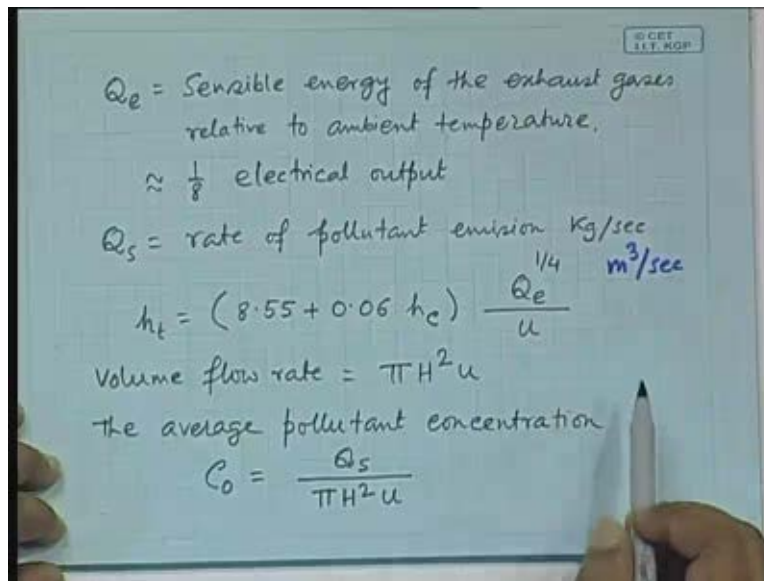 © CET
I.I.T. KGP
Qe = Sensible energy of the exhaust gases
relative to ambient temperature.
≈ 1/8 electrical output
Qs = rate of pollutant emision Kg/sec
m³/sec
ht = (8.55 + 0.06 hc) Qe^1/4 / u
Volume flow rate = πH²u
The average pollutant concentration
Co = Qs / πH²u